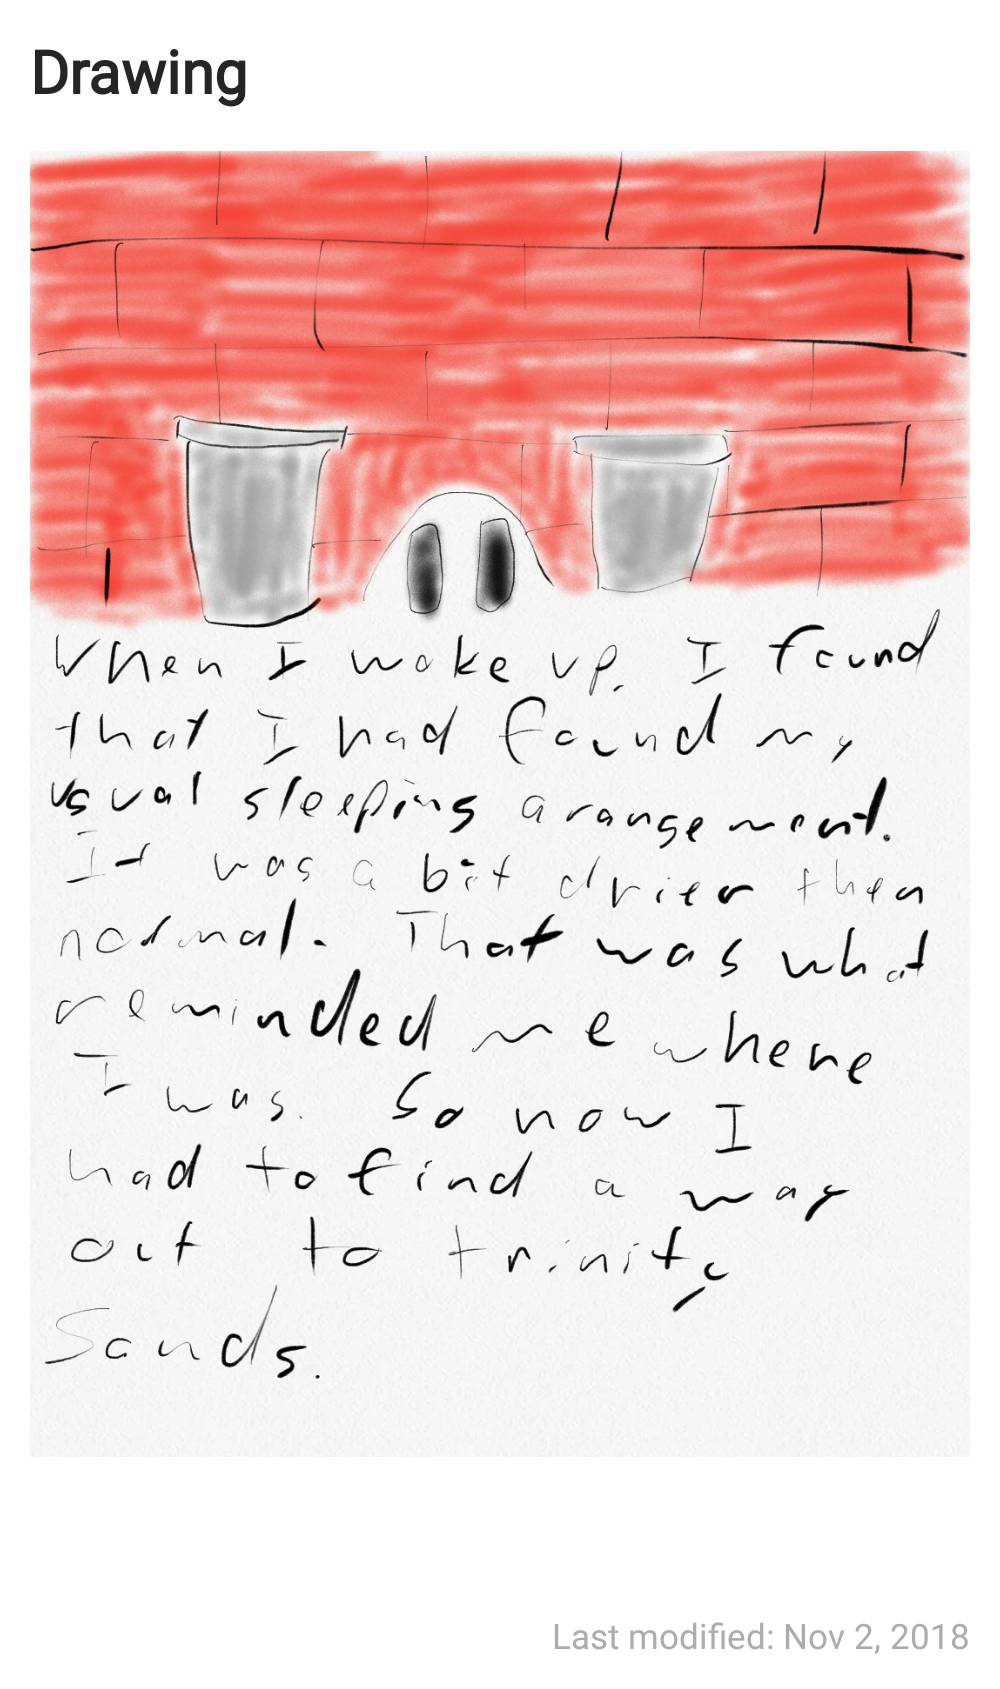 Drawing
When I woke up. I found
that I had found my
usual sleeping arangement.
It was a bit drier then
normal. That was what
reminded me where
I was. So now I
had to find a way
out to trinity
Sands.
Last modified: Nov 2, 2018